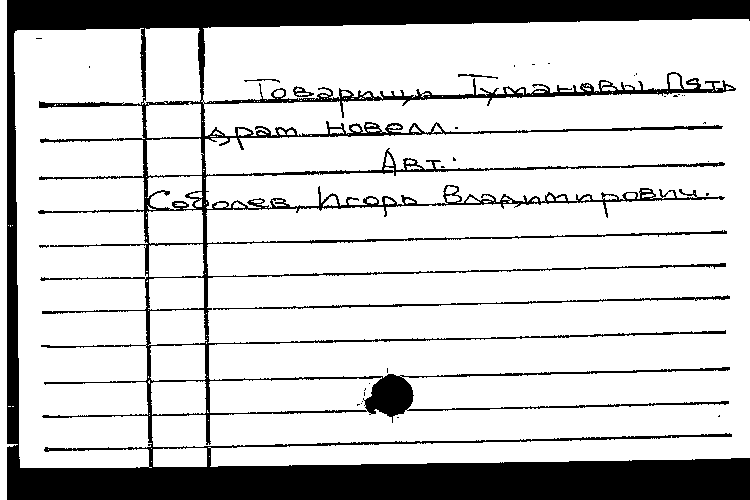 Товарищь Тумановы Пять
драм. новелл.
Авт.:
Соболев, Игорь Владимирович.